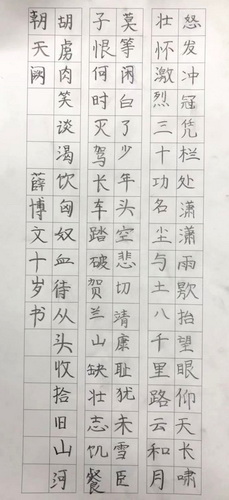 怒发冲冠凭栏处潇潇雨歇抬望眼仰天长啸
壮怀激烈三十功名尘与土八千里路云和月
莫等闲白了少年头空悲切靖康耻犹未雪臣
子恨何时灭驾长车踏破贺兰山缺壮志饥餐
胡虏肉笑谈渴饮匈奴血待从头收拾旧山河
朝天阙 薛博文十岁书